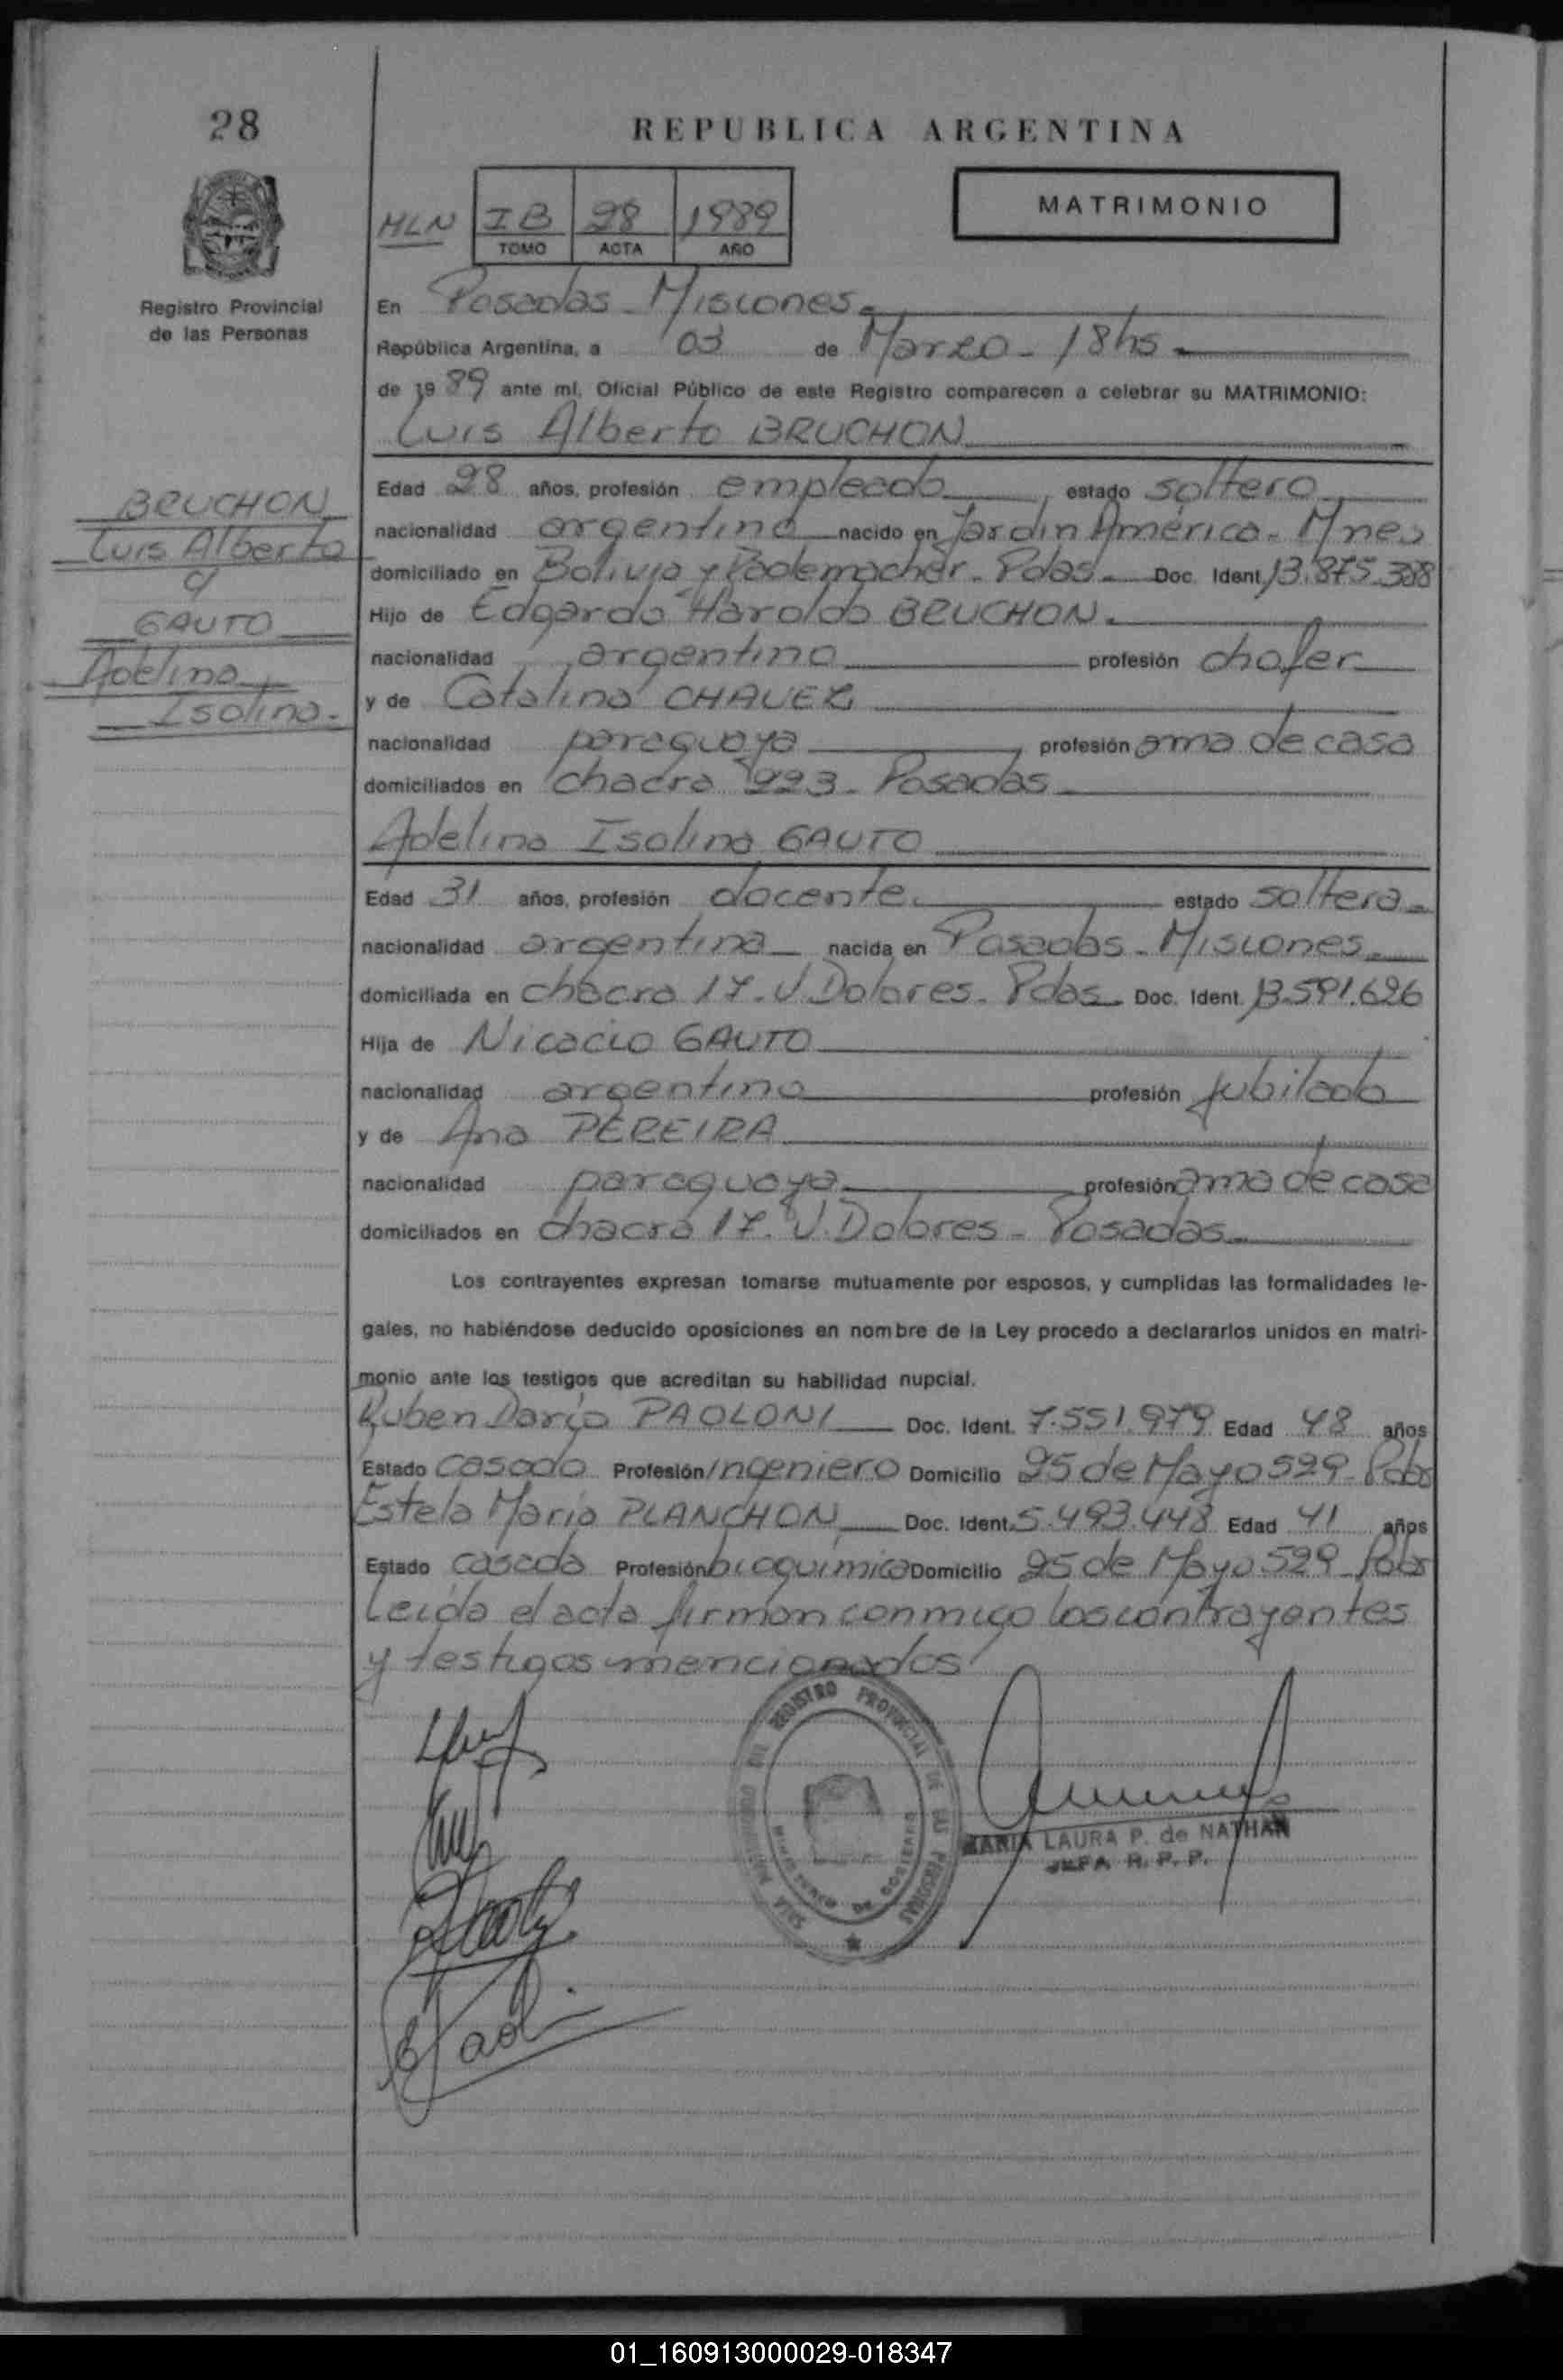 28
REPUBLICA ARGENTINA
MATRIMONIO
MLN IB 28 1989
TOMO ACTA AÑO
Registro Provincial
de las Personas
En Posadas - Misiones
República Argentina, a 03 de Marzo - 18hs
de 1989 ante mí, Oficial Público de este Registro comparecen a celebrar su MATRIMONIO:
Luis Alberto BRUCHON
BRUCHON
Luis Alberto
c/
GAUTO
Adelina
Isolina.
Edad 28 años, profesión empleado, estado soltero
nacionalidad argentina nacido en Jardín América - Mnes
domiciliado en Bolivia y Rademacher - Pdas - Doc. Ident 13.875.388
Hijo de Edgardo Haroldo BRUCHON.
nacionalidad argentino profesión chofer
y de Catalina CHAVEZ
nacionalidad paraguaya, profesión ama de casa
domiciliados en chacra 223 - Posadas
Adelina Isolina GAUTO
Edad 31 años, profesión docente. estado soltera
nacionalidad argentina nacida en Posadas - Misiones
domiciliada en chacra 17. V. Dolores - Pdas. Doc. Ident. 13.591.626
Hija de Nicacio GAUTO
nacionalidad argentino profesión jubilado
y de Ana PEREIRA
nacionalidad paraguaya profesión ama de casa
domiciliados en chacra 17. V. Dolores - Posadas
Los contrayentes expresan tomarse mutuamente por esposos, y cumplidas las formalidades le-
gales, no habiéndose deducido oposiciones en nombre de la Ley procedo a declararlos unidos en matri-
monio ante los testigos que acreditan su habilidad nupcial.
Ruben Darío PAOLONI Doc. Ident. 7.551.979 Edad 48 años
Estado casado Profesión ingeniero Domicilio 25 de Mayo 529 - Pdas
Estela María PLANCHON Doc. Ident. 5.493.448 Edad 41 años
Estado casada Profesión bioquímica Domicilio 25 de Mayo 529 - Pdas
Leída el acta firman conmigo los contrayentes
y testigos mencionados
REGISTRO PROVINCIAL DE LAS PERSONAS
MINISTERIO DE GOBIERNO
MARIA LAURA P. de NATHAN
JEFA R. P. P.
01_160913000029-018347